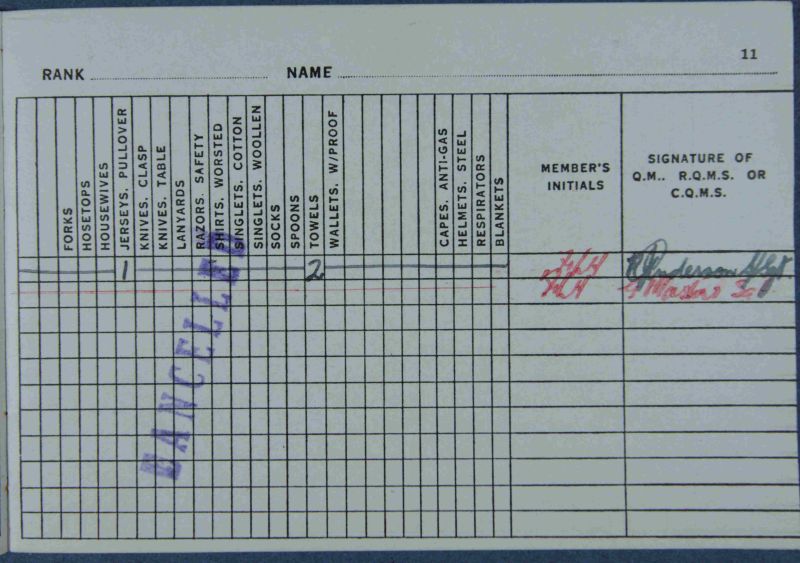 11
RANK NAME
FORKS
HOSETOPS
HOUSEWIVES
JERSEYS, PULLOVER
KNIVES, CLASP
KNIVES, TABLE
LANYARDS
RAZORS, SAFETY
SHIRTS, WORSTED
SINGLETS, COTTON
SINGLETS, WOOLLEN
SOCKS
SPOONS
TOWELS
WALLETS, W/PROOF
CAPES, ANTI-GAS
HELMETS, STEEL
RESPIRATORS
BLANKETS
MEMBER'S
INITIALS
SIGNATURE OF
Q.M.. R.Q.M.S. OR
C.Q.M.S.
1 2 Anderson
CANCELLED